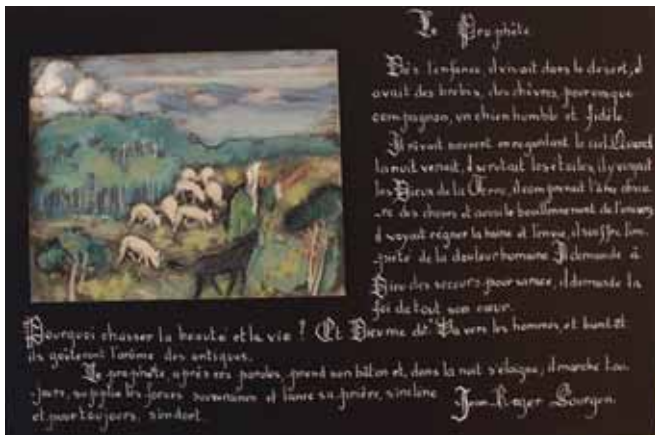 Le Prophète
Dès l'enfance, il vivait dans le désert, il
avait des brebis, des chèvres, pour unique
compagnon, un chien humble et fidèle
Il rêvait souvent en regardant le ciel. Quand
la nuit venait, il scrutait les étoiles, il y voyait
les Dieux de la Terre, il comprenait l'âme obscu-
re des choses et aussi le bouillonnement de l'univers
il voyait régner la haine et l'envie, il souffre
de la douleur humaine Il demande à
Dieu des secours pour sa race, il demande la
foi de tout son cœur.
Pourquoi chasser la beauté et la vie ? Et Dieu me dit Va vers les hommes, et bientôt
ils goûteront l'arôme des antiques.
Le prophète, après ces paroles, prend son bâton et, dans la nuit s'éloigne, il marche tou-
-jours, supplie les forces et lance sa prière, s'incline
et pour toujours, s'endort.
Jean-Roger Sourgen